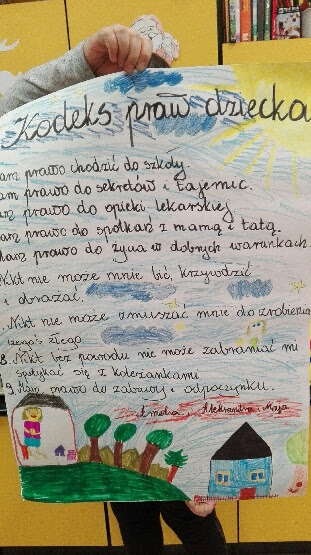 Kodeks praw dziecka
am prawo chodzić do szkoły.
am prawo do sekretów i tajemic.
am prawo do opieki lekarskiej
am prawo do spotkań z mamą i tatą.
Mam prawo do życia w dobrych warunkach.
Nikt nie może mnie bić, krzywdzić
i obrażać.
Nikt nie może zmuszać mnie do zrobienia
czegoś złego.
8. Nikt bez powodu nie może zabraniać mi
spotykać się z koleżankami
9. Mam prawo do zabawy i odpoczynku.
Amelia, Aleksandra i Maja